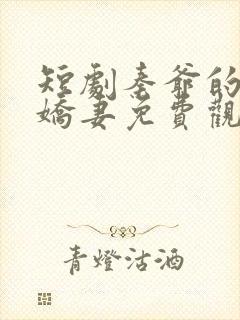 短劇秦爺的
嬌妻免費觀
青燈沽酒